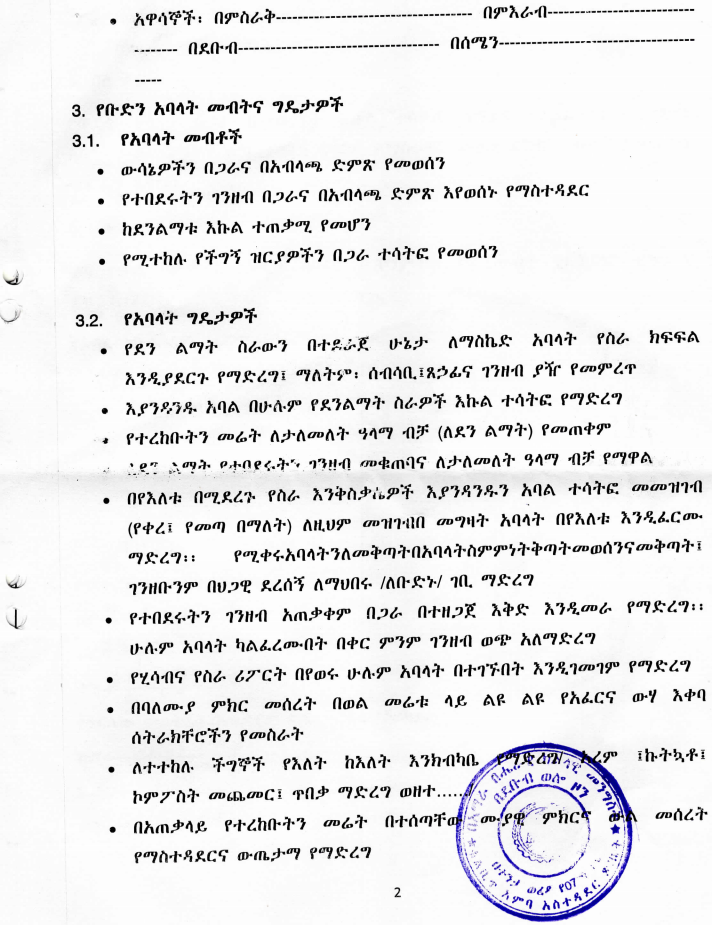 • አዋሳኞች፡ በምስራቅ------------------------------------ በምእራብ---------------------------
-------- በደቡብ------------------------------------- በሰሜን-------------------------------------
-----
3. የቡድን አባላት መብትና ግዴታዎች
3.1. የአባላት መብቶች
• ውሳኔዎችን በጋራና በአብላጫ ድምጽ የመወሰን
• የተበደሩትን ገንዘብ በጋራና በአብላጫ ድምጽ እየወሰኑ የማስተዳደር
• ከደንልማቱ እኩል ተጠቃሚ የመሆን
• የሚተከሉ የችግኝ ዝርያዎችን በጋራ ተሳትፎ የመወሰን
3.2. የአባላት ግዴታዎች
• የደን ልማት ስራውን በተደራጀ ሁኔታ ለማስኬድ አባላት የስራ ክፍፍል
እንዲያደርጉ የማድረግ፤ ማለትም፡ ሰብሳቢ፤ጸኃፊና ገንዘብ ያዥ የመምረጥ
• እያንዳንዱ አባል በሁሉም የደንልማት ስራዎች እኩል ተሳትፎ የማድረግ
• የተረከቡትን መሬት ለታለመለት ዓላማ ብቻ (ለደን ልማት) የመጠቀም
ልማት የተበደሩትን ገንዘብ መቁጠባና ለታለመለት ዓላማ ብቻ የማዋል
• በየእለቱ በሚደረጉ የስራ እንቅስቃሴዎች እያንዳንዱን አባል ተሳትፎ መመዝገብ
(የቀረ፤ የመጣ በማለት) ለዚህም መዝገብበ መግዛት አባላት በየእለቱ እንዲፈርሙ
ማድረግ፡፡ የሚቀሩአባላትንለመቅጣትበአባላትስምምነትቅጣትመወሰንናመቅጣት፤
ገንዘቡንም በህጋዊ ደረሰኝ ለማህበሩ /ለቡድኑ/ ገቢ ማድረግ
• የተበደሩትን ገንዘብ አጠቃቀም በጋራ በተዘጋጀ እቅድ እንዲመራ የማድረግ፡፡
ሁሉም አባላት ካልፈረሙበት በቀር ምንም ገንዘብ ወጭ አለማድረግ
• የሂሳብና የስራ ሪፖርት በየወሩ ሁሉም አባላት በተገኙበት እንዲገመገም የማድረግ
• በባለሙያ ምክር መሰረት በወል መሬቱ ላይ ልዩ ልዩ የአፈርና ውሃ እቀባ
ሰትራክቸሮችን የመስራት
• ለተተከሉ ችግኞች የእለት ከእለት እንክብካቤ የማድረግ/ አረም ፤ኩትኳቶ፤
ኮምፖስት መጨመር፤ ጥበቃ ማድረግ ወዘተ....../
• በአጠቃላይ የተረከቡትን መሬት በተሰጣቸው ሙያዊ ምክርና ውል መሰረት
የማስተዳደርና ውጤታማ የማድረግ
በደቡብ ወሎ ዞን
2